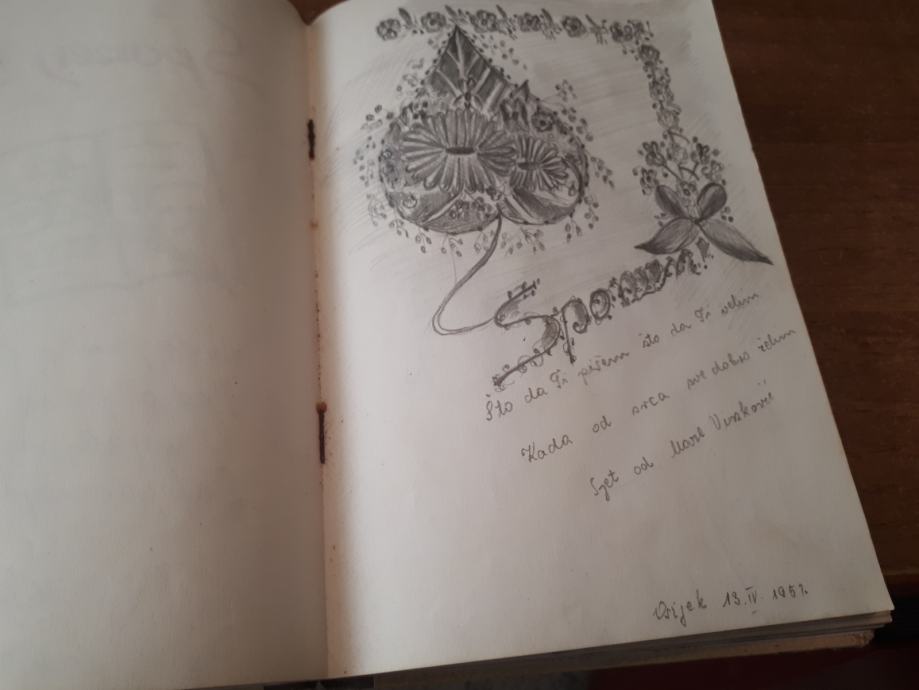 Spomen!
Što da Ti pišem što da Ti velim
Kada od srca sve dobro želim
Sjet od
Osijek 13. IV. 1951.